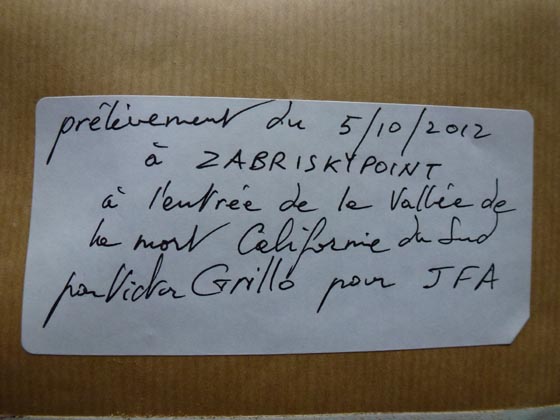 prélèvement du 5/10/2012
à ZABRISKYPOINT
à l'entrée de la Vallée de
la mort Californie du Sud
par Victor Grillo pour JFA